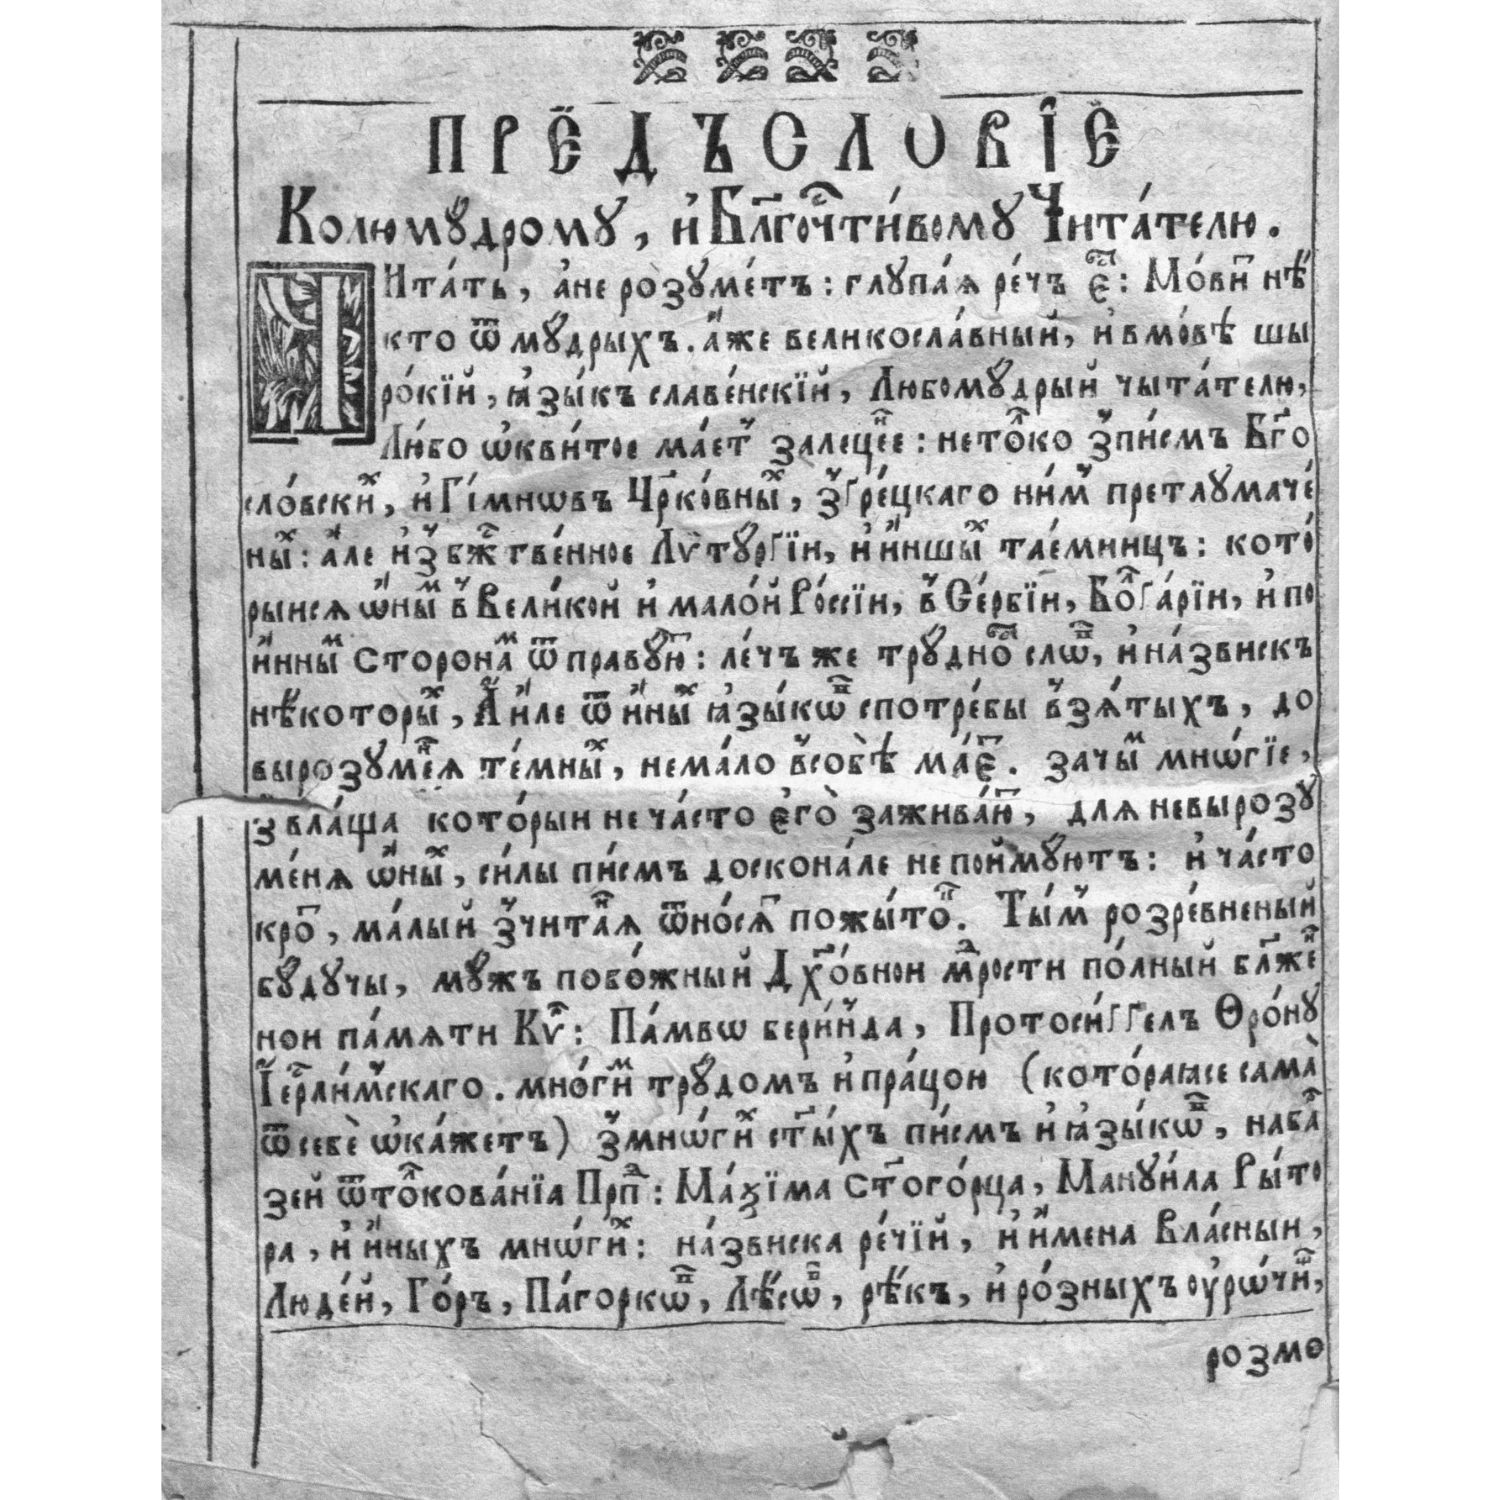 ПРЕДЪСЛОВІЕ
Колюмꙋдрому, и҆ Бл҃гоче́ⷭ҇тивому Чита́телю.
Чита́ть, а҆не розуме́тъ: глупа́ѧ ре́чъ є҆ⷭ҇: Мо́виⷮ нѣ́
кто ѿ мꙋ́дрыхъ. а҆́же великосла́вный, и҆ в мо́вѣ шы
ро́кїй, ꙗ҆зы́къ славе́нскїй, Любомꙋ́дрый чыта́телю,
Лю́бо ѡ҆кви́тое ма́етъ залеце́нⷩ҇е: нето́лⷧ҇ко зпи́смъ Бг҃о
сло́вскиⷯ, и҆ Гі́мнѡвъ Цр҃ко́вныⷯ, з̾гре́цкаго ни́мъ претлумаче́
ныⷯ: а҆́ле и҆ з̾ бжⷭ҇тве́нное Лѵтꙋргі́и, и҆ и҆́ншыⷯ таемни́цъ: кото́
рыися ѡ҆́ныⷨ в̾ Вели́кой и҆ мало́й Ро́ссїи, в̾ Се́рбїи, Боⷧ҇га́рїи, и҆ по
и҆́нныⷨ сторонаⷨ ѿправꙋ́юⷮ: ле́чъ же трꙋ́дноⷭ҇ сло́ⷡ҇, и҆ на́звискъ
нѣ́которыⷯ, А҆ и҆́ле ѿ и҆́ныⷯ ꙗ҆зы́кѡⷡ҇ спотре́бы в̾зѧ́тыхъ, до
вырозуме́нⷩ҇ѧ те́мныⷯ, нема́ло в̾собѣ̀ ма́еⷮ. зачы́ⷨ мнѡ́гїе,
звла́ща кото́рыи не ча́сто є҆го̀ зажива́юⷮ, для невырозу
ме́нѧ ѡ҆́ныⷯ, си́лы пи́смъ доскона́ле не пойму́ютъ: и҆ ча́сто
кроⷮ, ма́лый з̾чита́нⷩ҇ѧ ѿно́сѧⷮ пожы́тоⷦ҇. Ты́мъ розре́вненый
бꙋ́дꙋчы, мꙋжъ побо́жный Дх҃о́внои мⷣрости по́лный бл҃же́ⷩ҇
нои па́мѧти Кѵ́ⷬ҇: Па́мвѡ бери́нда, Протоси́ггелъ Ѳро́нꙋ
І҆ерⷭ҇ли́мскаго. мно́гиⷨ трꙋдо́мъ и҆ пра́цою (кото́раꙗсе сама̀
ѿ себѐ ѡ҆ка́жетъ) з̾мнѡ́гиⷯ ст҃ы́хъ пи́смъ и҆ ꙗ҆зы́кѡⷡ҇, наба́ⷬ҇
зей ѿтоⷧ҇кова́нїа Прпⷣ: Ма́ѯїма ст҃ого́рца, Мануи́ла Ры́то
ра, и҆ и҆́ныхъ мнѡ́гиⷯ: на́звиска ре́чїй, и҆ и҆мена вла́сныи,
Люде́й, Го́ръ, Па́горкѡⷡ҇, Лѣ́сѡⷡ҇, рѣ́къ, и҆ ро́зныхъ оурѡ́чиⷳ,
розмо